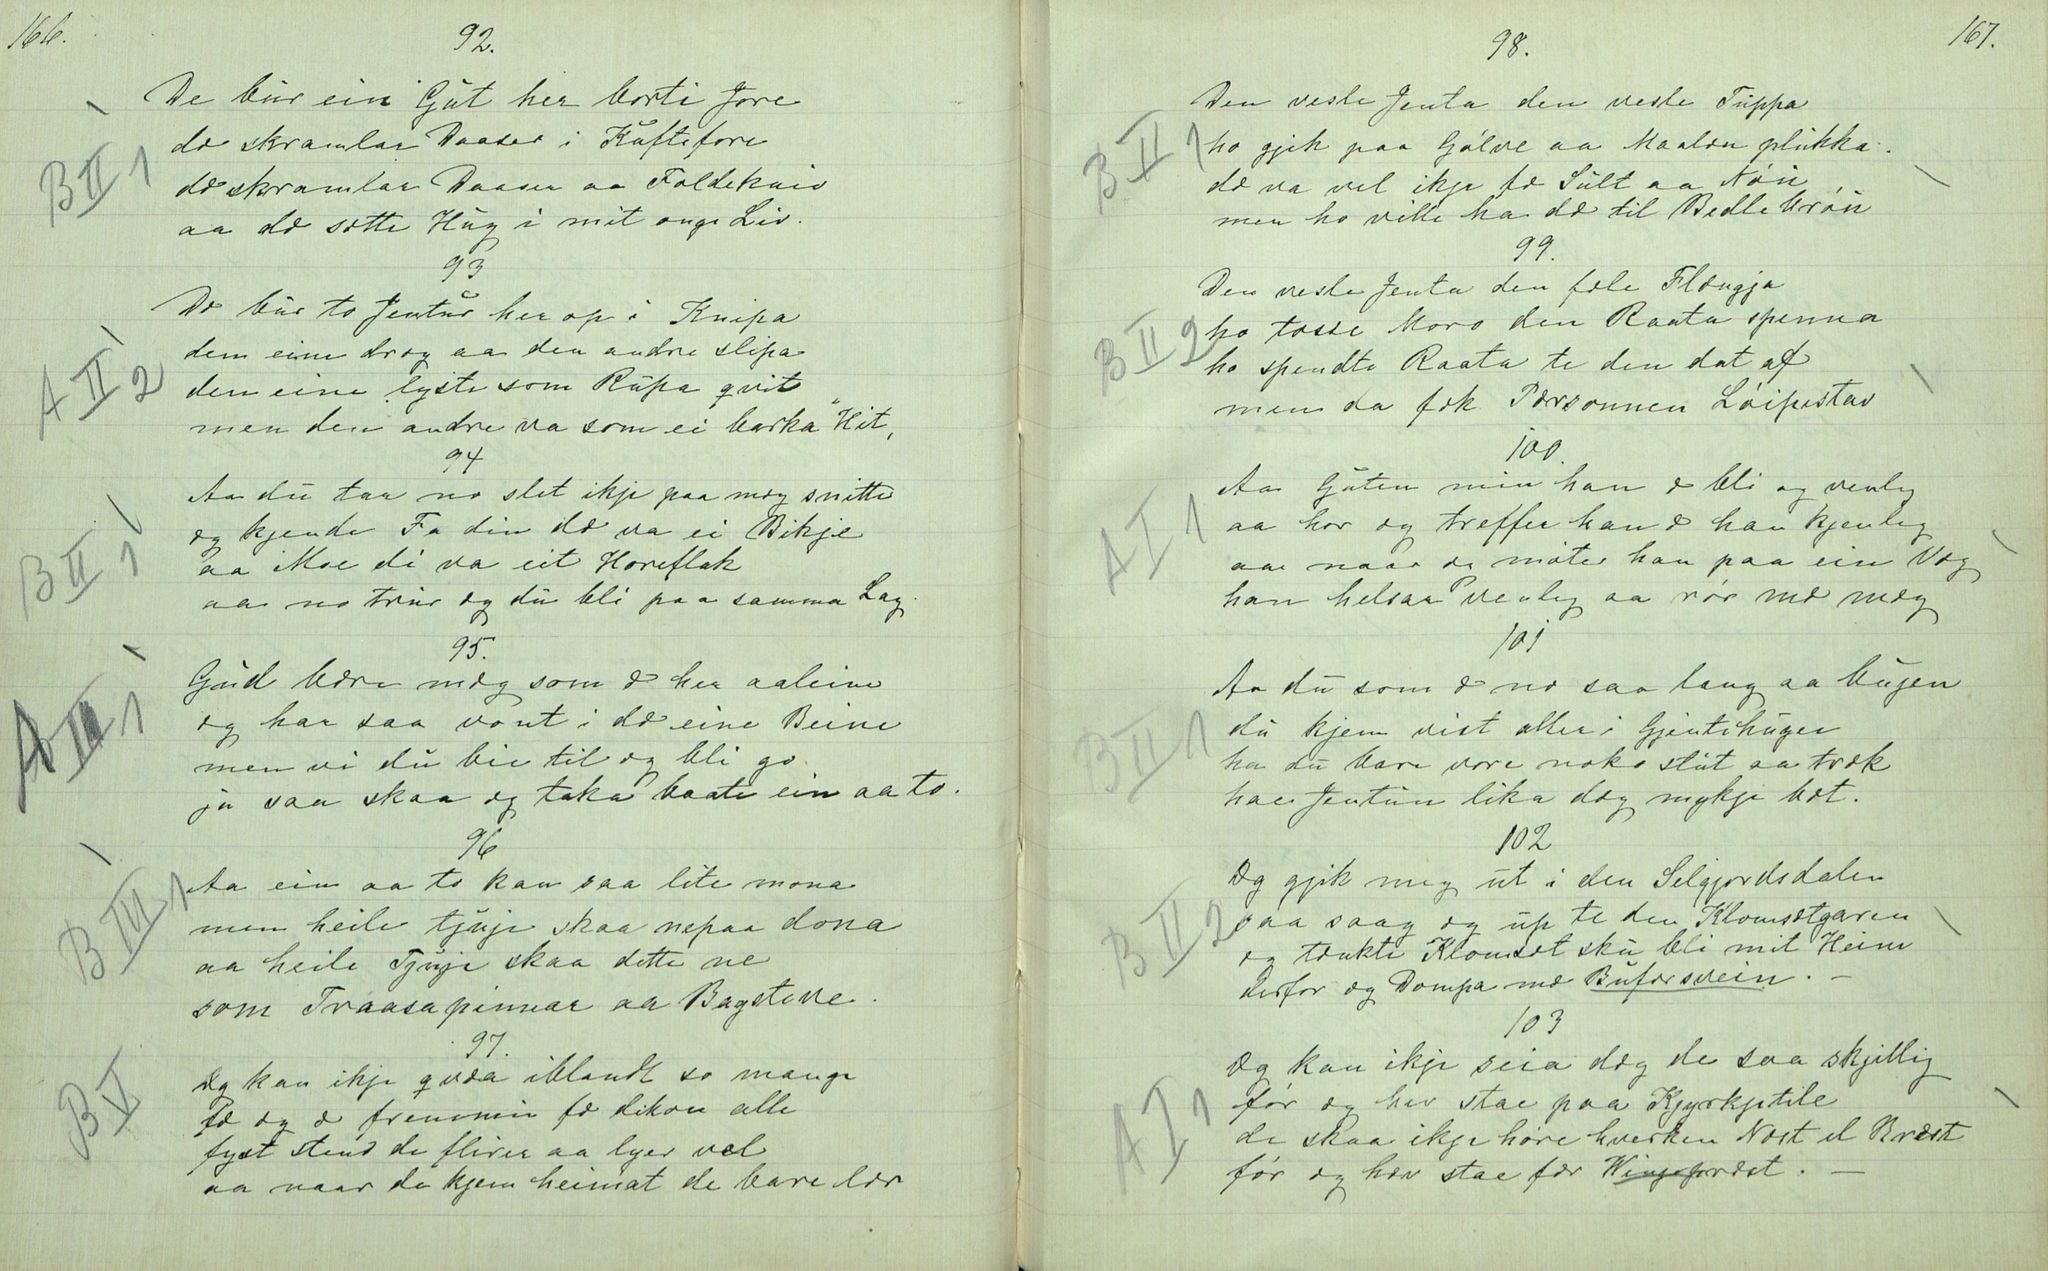 166.
92.
De bur ein Gut her borti Jore
dæ skramlar Daaser i Kuftefore
dæ skramlar Daaser aa Foldekniv
aa dæ sette Hug i mit onge Liv.
B II 1
93
Dæ bur to Jentur her op i Knipa
den eine drog aa den andre slipa
den eine lyste som Rupa qvit
men den andre va som ei barka "Hit"
A II 2
94
Aa du tar no slet ikje paa mæg snitte
eg kjende Fa din dæ va ei Bikje
aa Moe di va eit Horeflak
aa no trur eg du bli paa samma Lag.
B II 1
95.
Gud bære mæg som æ her aaleine
eg har saa vont i dæ eine Beine
men vi du bie til eg bli go
ja saa skaa eg taka baate ein aa to.
A III 1
96
Aa ein aa to kan saa lite mona
men heile tjuje skaa nepaa dona
aa heile Tjuje skaa dette ne
som Traasapinnar aa Bagstove.
B III 1
97.
Eg kan ikje qvæa iblandt so mange
fæ eg æ frenimin fæ dikon alle
fyst stend de flirer aa lyer vel
aa naar de kjem heimat de bare lær
B V
167.
98.
Den vesle Jenta den vesle Tuppa
ho gjik paa Golve aa Maalen plukka.
dæ va vel ikje fæ Sult aa Nøu
men ho ville ha dæ til Bedlebrøu
B II 1
99.
Den vesle Jenta den fæle Flængja
ho tosse Moro den Raata spenna
ho spendte Raata te den dat af
men da fek Personnen Løipestav
B II 2
100
Aa Guten min han æ bli og venleg
aa hor eg treffer han æ han kjenleg
aa naar eg møter han paa ein Veg
han helsar venleg aa rør mæ mæg
A I 1
101
Aa du som æ no saa lang aa bugen
du kjem vist aller i Gjentehugen
ha du bare vore noko stut aa træk
hae Jentun lika dæg mykje bæt.
B II 1
102
Eg gjik meg ut i den Selgjordsdalen
saa saag eg up te den Klomsetgaren
eg tænkte Klomset sku bli mit Heim
derfor eg Dompa mæ Buførsvein. –
B II 2
103
Eg kan ikje seia dæg de saa skjillig
før eg hev stae paa Kjyrkjetile
de skaa ikje høre hverken Næst el Bræst
før eg hev stae fær Winjepræst. –
A I 1